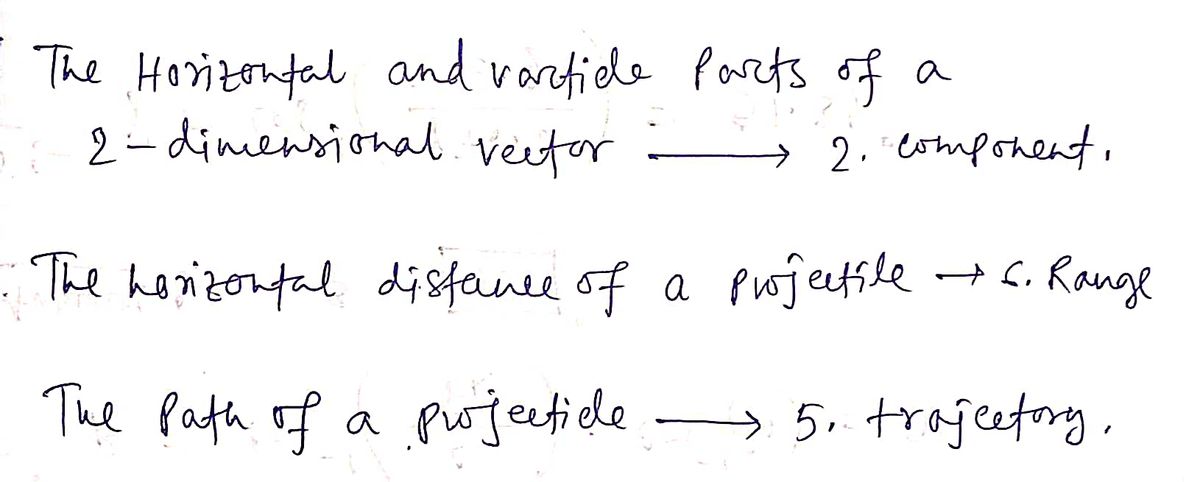 The Horizontal and varticle Parts of a
2-dimensional vector → 2. component.
The horizontal distance of a projectile → 6. Range
The Path of a projecticle → 5. trajectory.